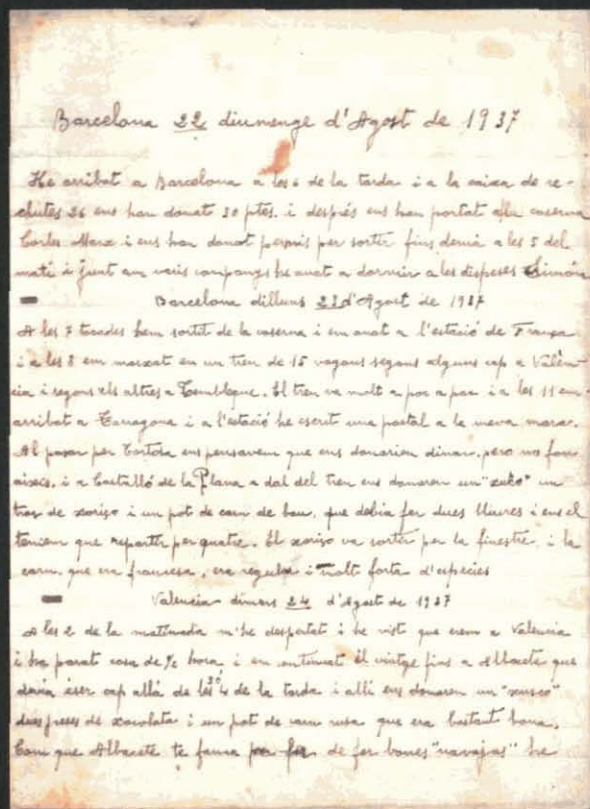 Barcelona 22 diumenge d'Agost de 1937
He arribat a Barcelona a les 6 de la tarda i a la caixa de re-
clutes 26 ens han donat 30 ptes. i després ens han portat a la caserna
Carles Marx i ens han donat permís per sortir fins demà a les 5 del
matí i junt am varis companys he anat a dormir a les dispeses Simón
Barcelona dilluns 23 d'Agost de 1937
A les 7 tocades hem sortit de la caserna i em anat a l'estació de França
i a les 8 em marxat en un tren de 15 vagons segons alguns cap a Valèn-
cia i segons els altres a Tembleque. El tren va molt a poc a poc i a les 11 em
arribat a Tarragona i a l'estació he escrit una postal a la meva mare.
Al pasar per Tortosa ens pensavem que ens donarien dinar, pero no fou
aixis, i a Castalló de la Plana a dal del tren ens donaren un
tros de xoriso i un pot de carn de bou, que debia fer dues lliures i ens el
teniem que repartir per quatre. El xoriso va sortir per la finestre, i la
carn, que era francesa, era regular i molt forta d'especies
Valencia dimars 24 d'Agost de 1937
A les 2 de la matinada m'he despertat i he vist que erem a Valencia
i ha parat cosa de ½ hora, i em continuat el viatge fins a Albacete que
devia éser cap allà de les 3¼ de la tarda i alli ens donaren un "xusco"
dues preses de xocolata i un pot de carn rusa que era bastant bona.
Com que Albacete te fama de fer bones "navajas" he